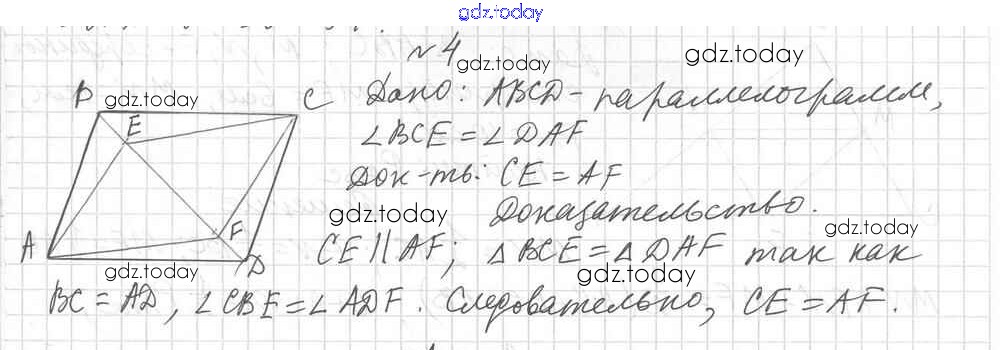 gdz.today
№4
gdz.today
gdz.today
B
gdz.today
C
Дано: ABCD - параллелограмм,
E
∠BCE = ∠DAF
Док-ть: CE = AF
gdz.today
Доказательство.
A
F
D
gdz.today
CE || AF; △BCE = △DAF так как
gdz.today
gdz.today
BC = AD, ∠CBE = ∠ADF. Следовательно, CE = AF.